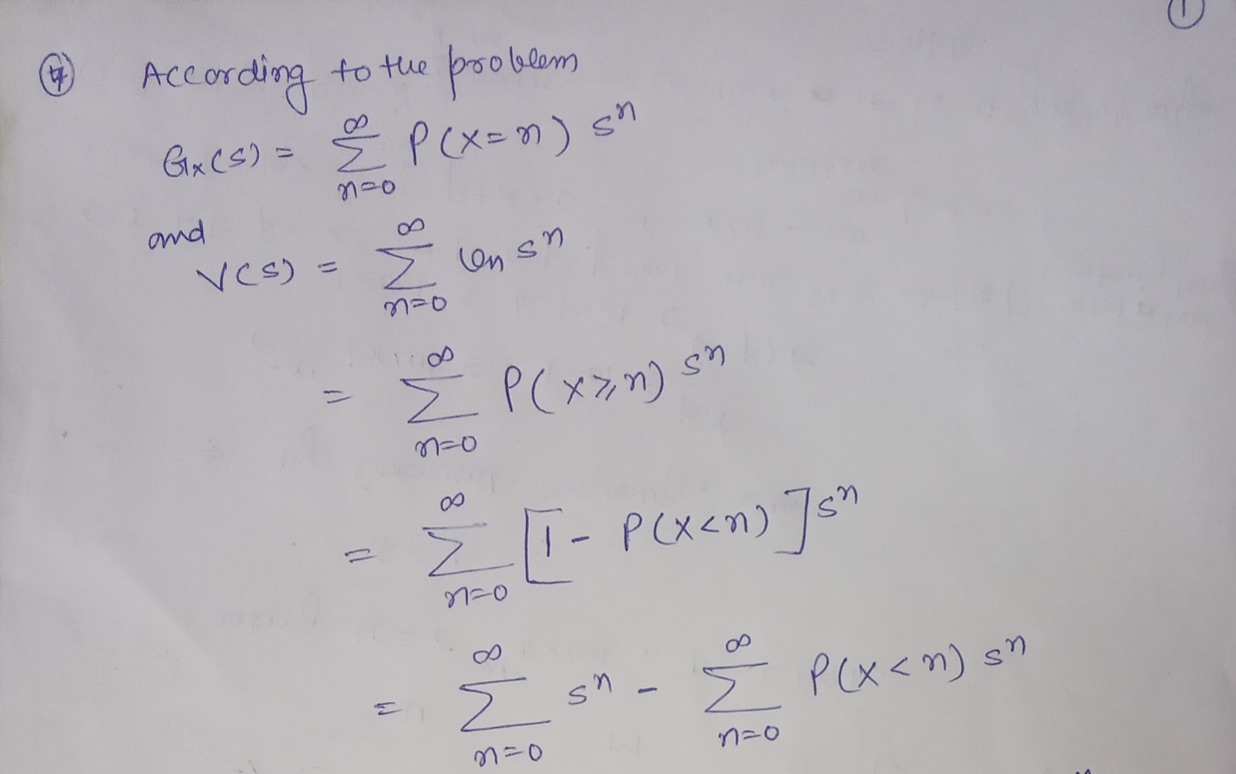 ①
④ According to the problem
Gx(s) = ∞∑n=0 P(X=n) sⁿ
and
V(s) = ∞∑n=0 vn sⁿ
= ∞∑n=0 P(X⩾n) sⁿ
= ∞∑n=0 [1 - P(X<n)] sⁿ
= ∞∑n=0 sⁿ - ∞∑n=0 P(X<n) sⁿ